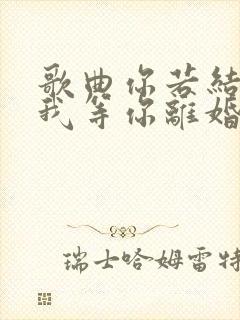 歌曲你若結
我等你離婚
瑞士哈姆雷特